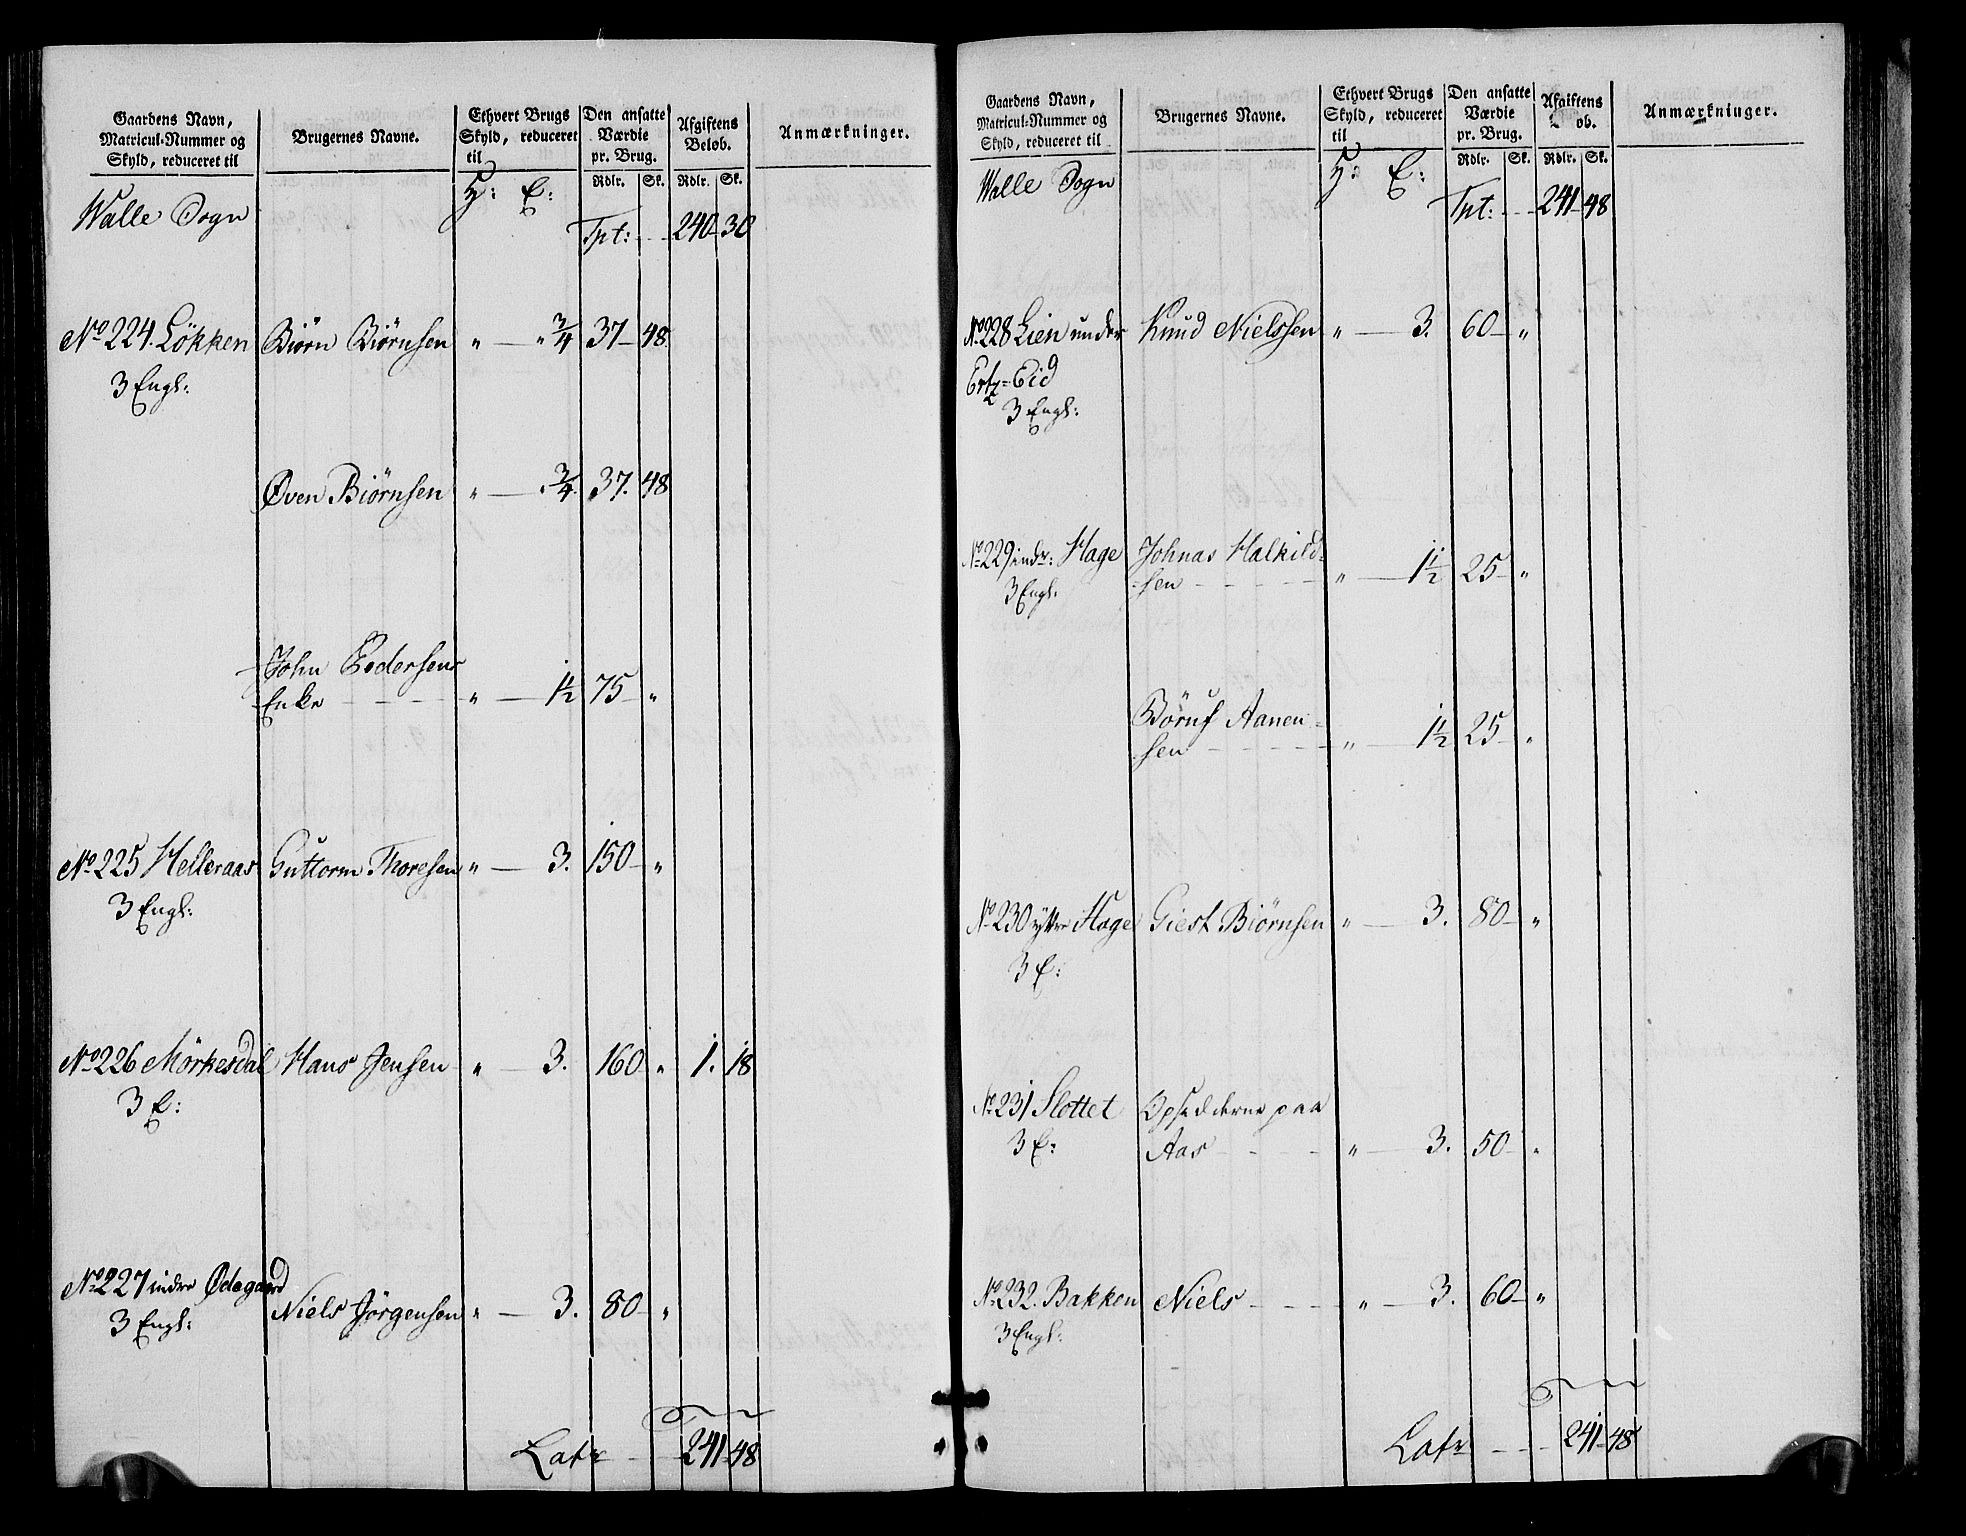 Gaardens Navn,
Matricul-Nummer og
Skyld, reduceret til
Brugernes Navne.
Ethvert Brugs
Skyld, reduceret
til
Den ansatte
Værdie
pr. Brug.
Rdlr. Sk.
Afgiftens
Beløb.
Rdlr. Sk.
Anmærkninger.
H: E:
Walle Sogn
Tpt: 240 30
No 224. Lökken Biørn Biørnsen " " 3/4 37 48
3 Engl:
Øven Biørnsen " " 3/4. 37. 48
John Pedersens
Enke " 1 1/2 75 "
No 225 Helleraas Guttorm Thoresen " 3. 150 "
3 Engl:
No 226 Mörkesdal Hans Jensen " 3. 160 " 1. 18
3 E:
No 227 indre Ødegaard
Niels Jörgensen " 3. 80 "
3 Engl:
Latr 241 48
Gaardens Navn,
Matricul-Nummer og
Skyld, reduceret til
Brugernes Navne.
Ethvert Brugs
Skyld, reduceret
til
Den ansatte
Værdie
pr. Brug.
Rdlr. Sk.
Afgiftens
ob.
Rdlr. Sk.
Anmærkninger.
H: E:
Walle Sogn
Tpt: 241 48
No 228 Lien under Knud Nielssen " 3. 60 "
Ertz=Eid
3 Engl:
No 229 indr: Hage Johnas Halkild=
3 Engl. =sen " 1 1/2 25 "
Aanen=
sen " 1 1/2 25 "
No 230 yttre Hage Giest Biørnsen " 3. 80 "
3 E:
No 231 Slottet Opsidderne paa
3 E: Aas " 3. 50 "
No 232. Bakken Niels " 3. 60 "
3 Engl:
Latr 241 48